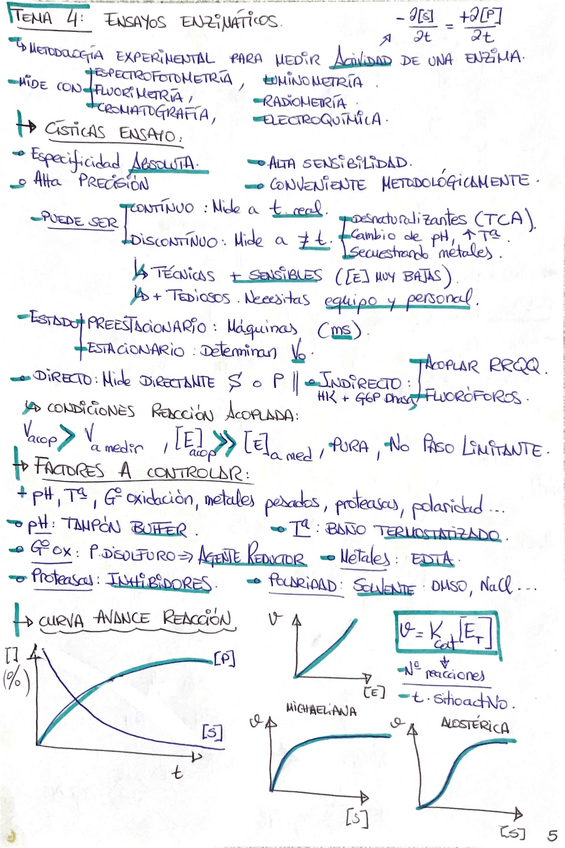 TEMA 4: ENSAYOS ENZIMÁTICOS.
-∂[S]/∂t = +∂[P]/∂t
↳ METODOLOGÍA EXPERIMENTAL PARA MEDIR Actividad DE UNA ENZIMA.
-MIDE CON ESPECTROFOTOMETRÍA, LUMINOMETRÍA.
FLUORIMETRÍA, -RADIOMETRÍA.
CROMATOGRAFÍA, -ELECTROQUÍMICA.
↳ CÍSTICAS ENSAYO:
Especificidad ABSOLUTA. ALTA SENSIBILIDAD.
Alta PRECISIÓN CONVENIENTE METODOLÓGICAMENTE.
-PUEDE SER CONTÍNUO: Mide a t real.
DISCONTÍNUO: Mide a ≠ t.
Desnaturalizantes (TCA).
Cambio de pH, ↑Tª.
Secuestrando metales.
↳ TÉCNICAS + SENSIBLES ([E] MUY BAJAS).
↳ + TEDIOSOS. Necesitas equipo y personal.
-ESTADO PREESTACIONARIO: Máquinas (ms).
ESTACIONARIO: Determinan V₀.
DIRECTO: Mide DIRECTANTE S o P || INDIRECTO: ACOPLAR RRQQ.
HK + G6P Dhasa FLUORÓFOROS.
↳ CONDICIONES REACCIÓN ACOPLADA:
Vacop > Va medir, [E]acop >> [E]a med, PURA, No PASO LIMITANTE.
↳ FACTORES A CONTROLAR:
+ pH, Tª, Gº oxidación, metales pesados, proteasas, polaridad...
pH: TAMPÓN BUFFER. Tª: BAÑO TERMOSTATIZADO.
Gº OX: P. DISULFURO ⇒ AGENTE REDUCTOR Metales: EDTA.
Proteasas: INHIBIDORES. POLARIDAD: SOLVENTE: DMSO, NaCl...
↳ CURVA AVANCE REACCIÓN
[] (%)
[P]
[S]
t
v
[E]
v = Kcat [ET]
-Nº reacciones
-t. sitioactNo.
MICHAELIANA
v
[S]
ALOSTÉRICA
v
[S]
5